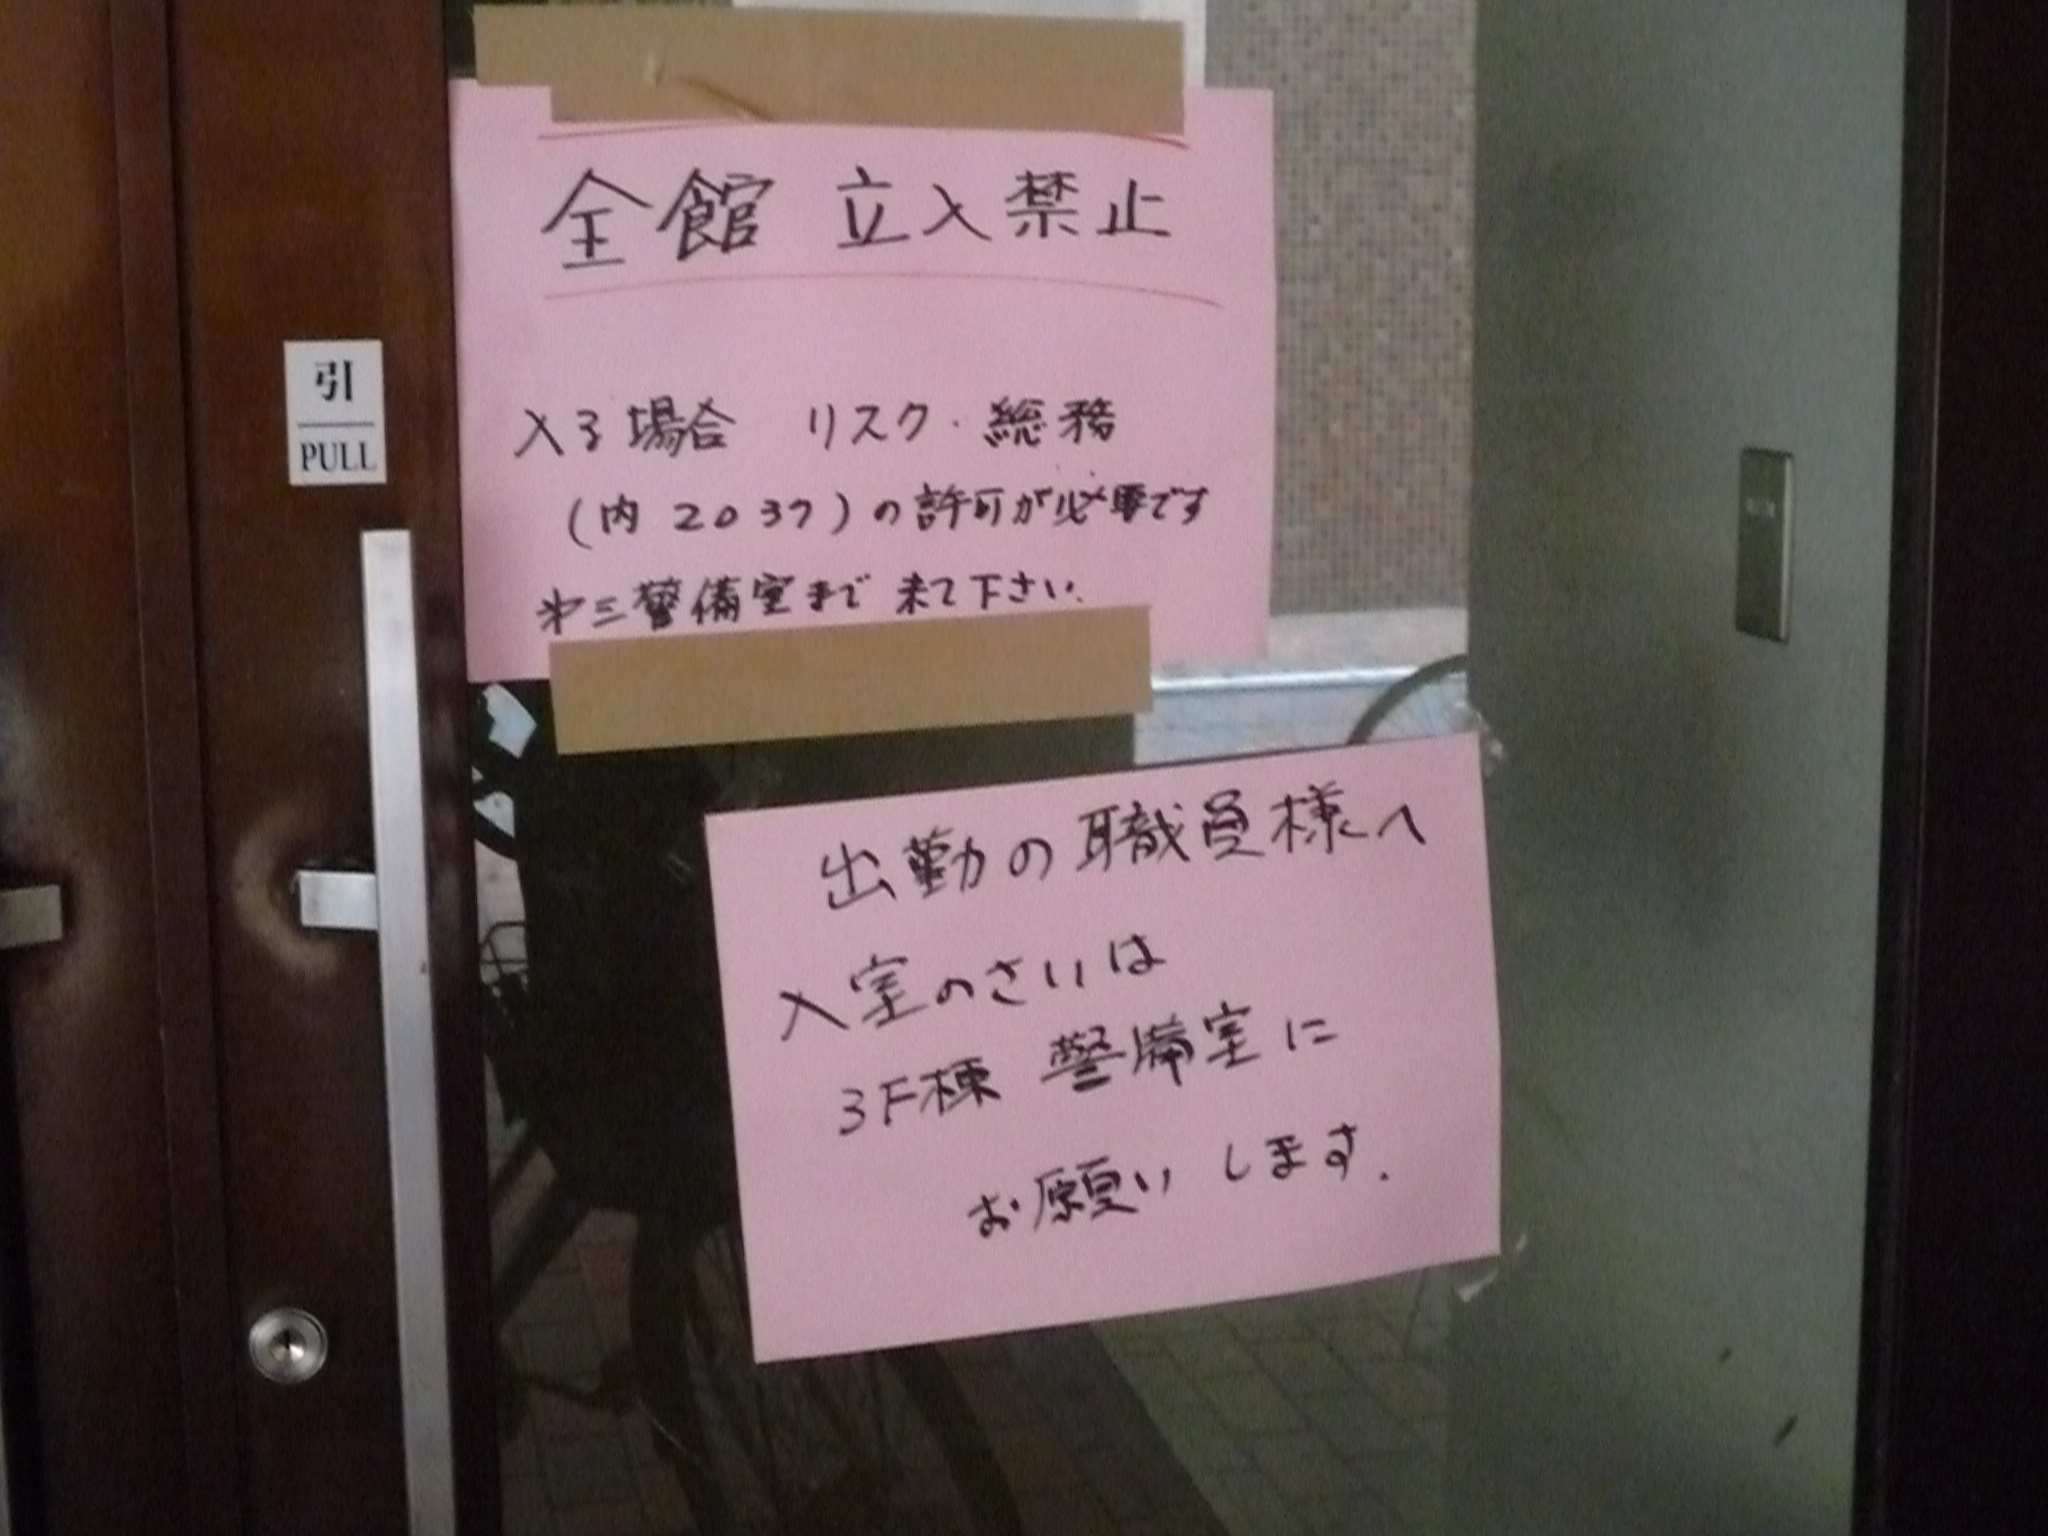 全館 立入禁止
入る場合 リスク・総務
(内 2037)の許可が必要です
㐧三警備室まで来て下さい.
引
PULL
出勤の職員様へ
入室のさいは
3F棟 警備室に
お願いします.